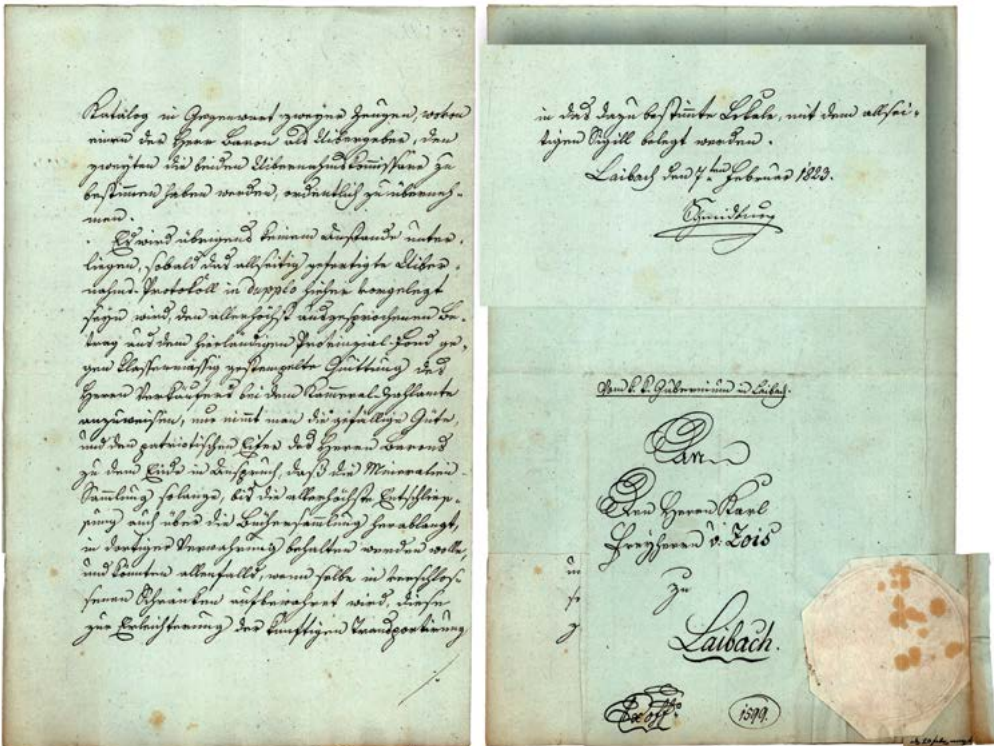 Katalog in Gegenwart zweyer Zeugen, wovon
einen der Herr Baron als Uibergeber, den
zweyten die beiden Uibernahmskommissäre zu
bestimmen haben werden, ordentlich zu überneh-
men.
Es wird übrigens keinem Anstande unter-
liegen, sobald das allseitig gefertigte Uiber-
nahms-Protokoll in dupplo hieher vorgelegt
seyn wird, den allerhöchst ausgesprochenen Be-
trag aus dem hierländigen Provinzial-Fond ge-
gen klassenmässig gestempelte Quittung des
Herrn Verkäufers bei dem Kammeral-Zahlamte
anzuweisen, nur nimmt man die gefällige Güte,
und den patriotischen Eifer des Herrn Barons
zu dem Ende in Anspruch, daß die Mineralien-
Sammlung solange, bis die allerhöchste Entschlies-
sung auch über die Büchersammlung herablangt,
in dortiger Verwahrung behalten werden wolle,
und könnten allenfalls, wenn selbe in verschlos-
senen Schränken aufbewahret wird, diese
zur Erleichterung der künftigen Transportirung
in das dazu bestimmte Lokale, mit dem allsei-
tigen Sigill belegt werden.
Laibach den 7ten Februar 1823.
Schmidburg
Vom k. k. Gubernium in Laibach.
An
Den Herrn Karl
Freyherrn v: Zois
zu
Laibach.
Ex offo
1599.